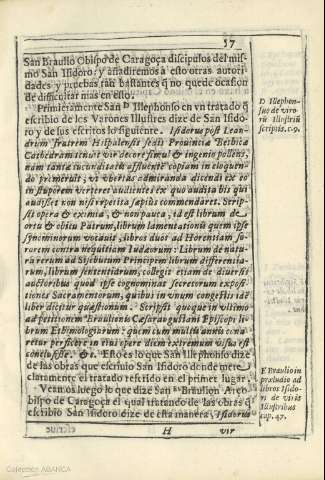 57
San Braulio Obispo de Caragoça discipulos del mis
mo San Isidoro: y añadiremos a esto otras autori
dades y pruebas tan bastantes q̃ no quede ocasion
de dificultar mas en esto.
Primeramente San Illephonso en vn tratado q̃
escribio de los Varones Illustres dize de San Isido
ro y de sus escritos lo siguiente. Isidorus post Lean
drum fratrem Hispalensis sedis Prouinciæ Bethicæ
Cathedram tenuit vir decore simul & ingenio pollens,
nam tantæ iucunditatis affluentē copiam in eloquen
do promeruit, vt vbertas admiranda dicendi ex eo
in stuporem verteret audientes ex quo audita bis qui
audisset non nisi repetita sæpius commendaret. Scrip
sit opera & eximia, & non pauca, id est librum de
ortu & obitu Patrum, librum lamentationis quem ipse
synonimorum vocauit, libros duos ad Florentiam so
rorem contra nequitiam Iudæorum: Librum de natu-
ra rerum ad Sisebutum Principem librum differentia-
rum, librum sententiarum, collegit etiam de diuersis
auctoribus quod ipse cognominat secretorum exposi
tiones Sacramentorum, quibus in vnum congestis idē
liber dicitur quæstionum. Scripsit quoque in vltimo
ad petitionem Braulij Cæsaraugustani Episcopi li
brum Ethimologiarum: quem cum multis annis cona
retur perficere in eius opere diem extremum visus est
conclusisse. & c. Esto es lo que San Illephonso dize
de las obras que escriuio San Isidoro donde mete
claramente el tratado referido en el primer lugar.
Veamos luego lo que dize San Braulion Arço
bispo de Caragoça el qual tratando de las obras q̃
escribio San Isidoro dize de esta manera, Isidorus
H
vir
D. Illephon-
sus de viro-
rū Illustriū
scriptis. c. 9.
F. Braulio in
præludio ad
libros Isido-
ri de viris
Illustribus
cap. 47.
Colección ABANCA